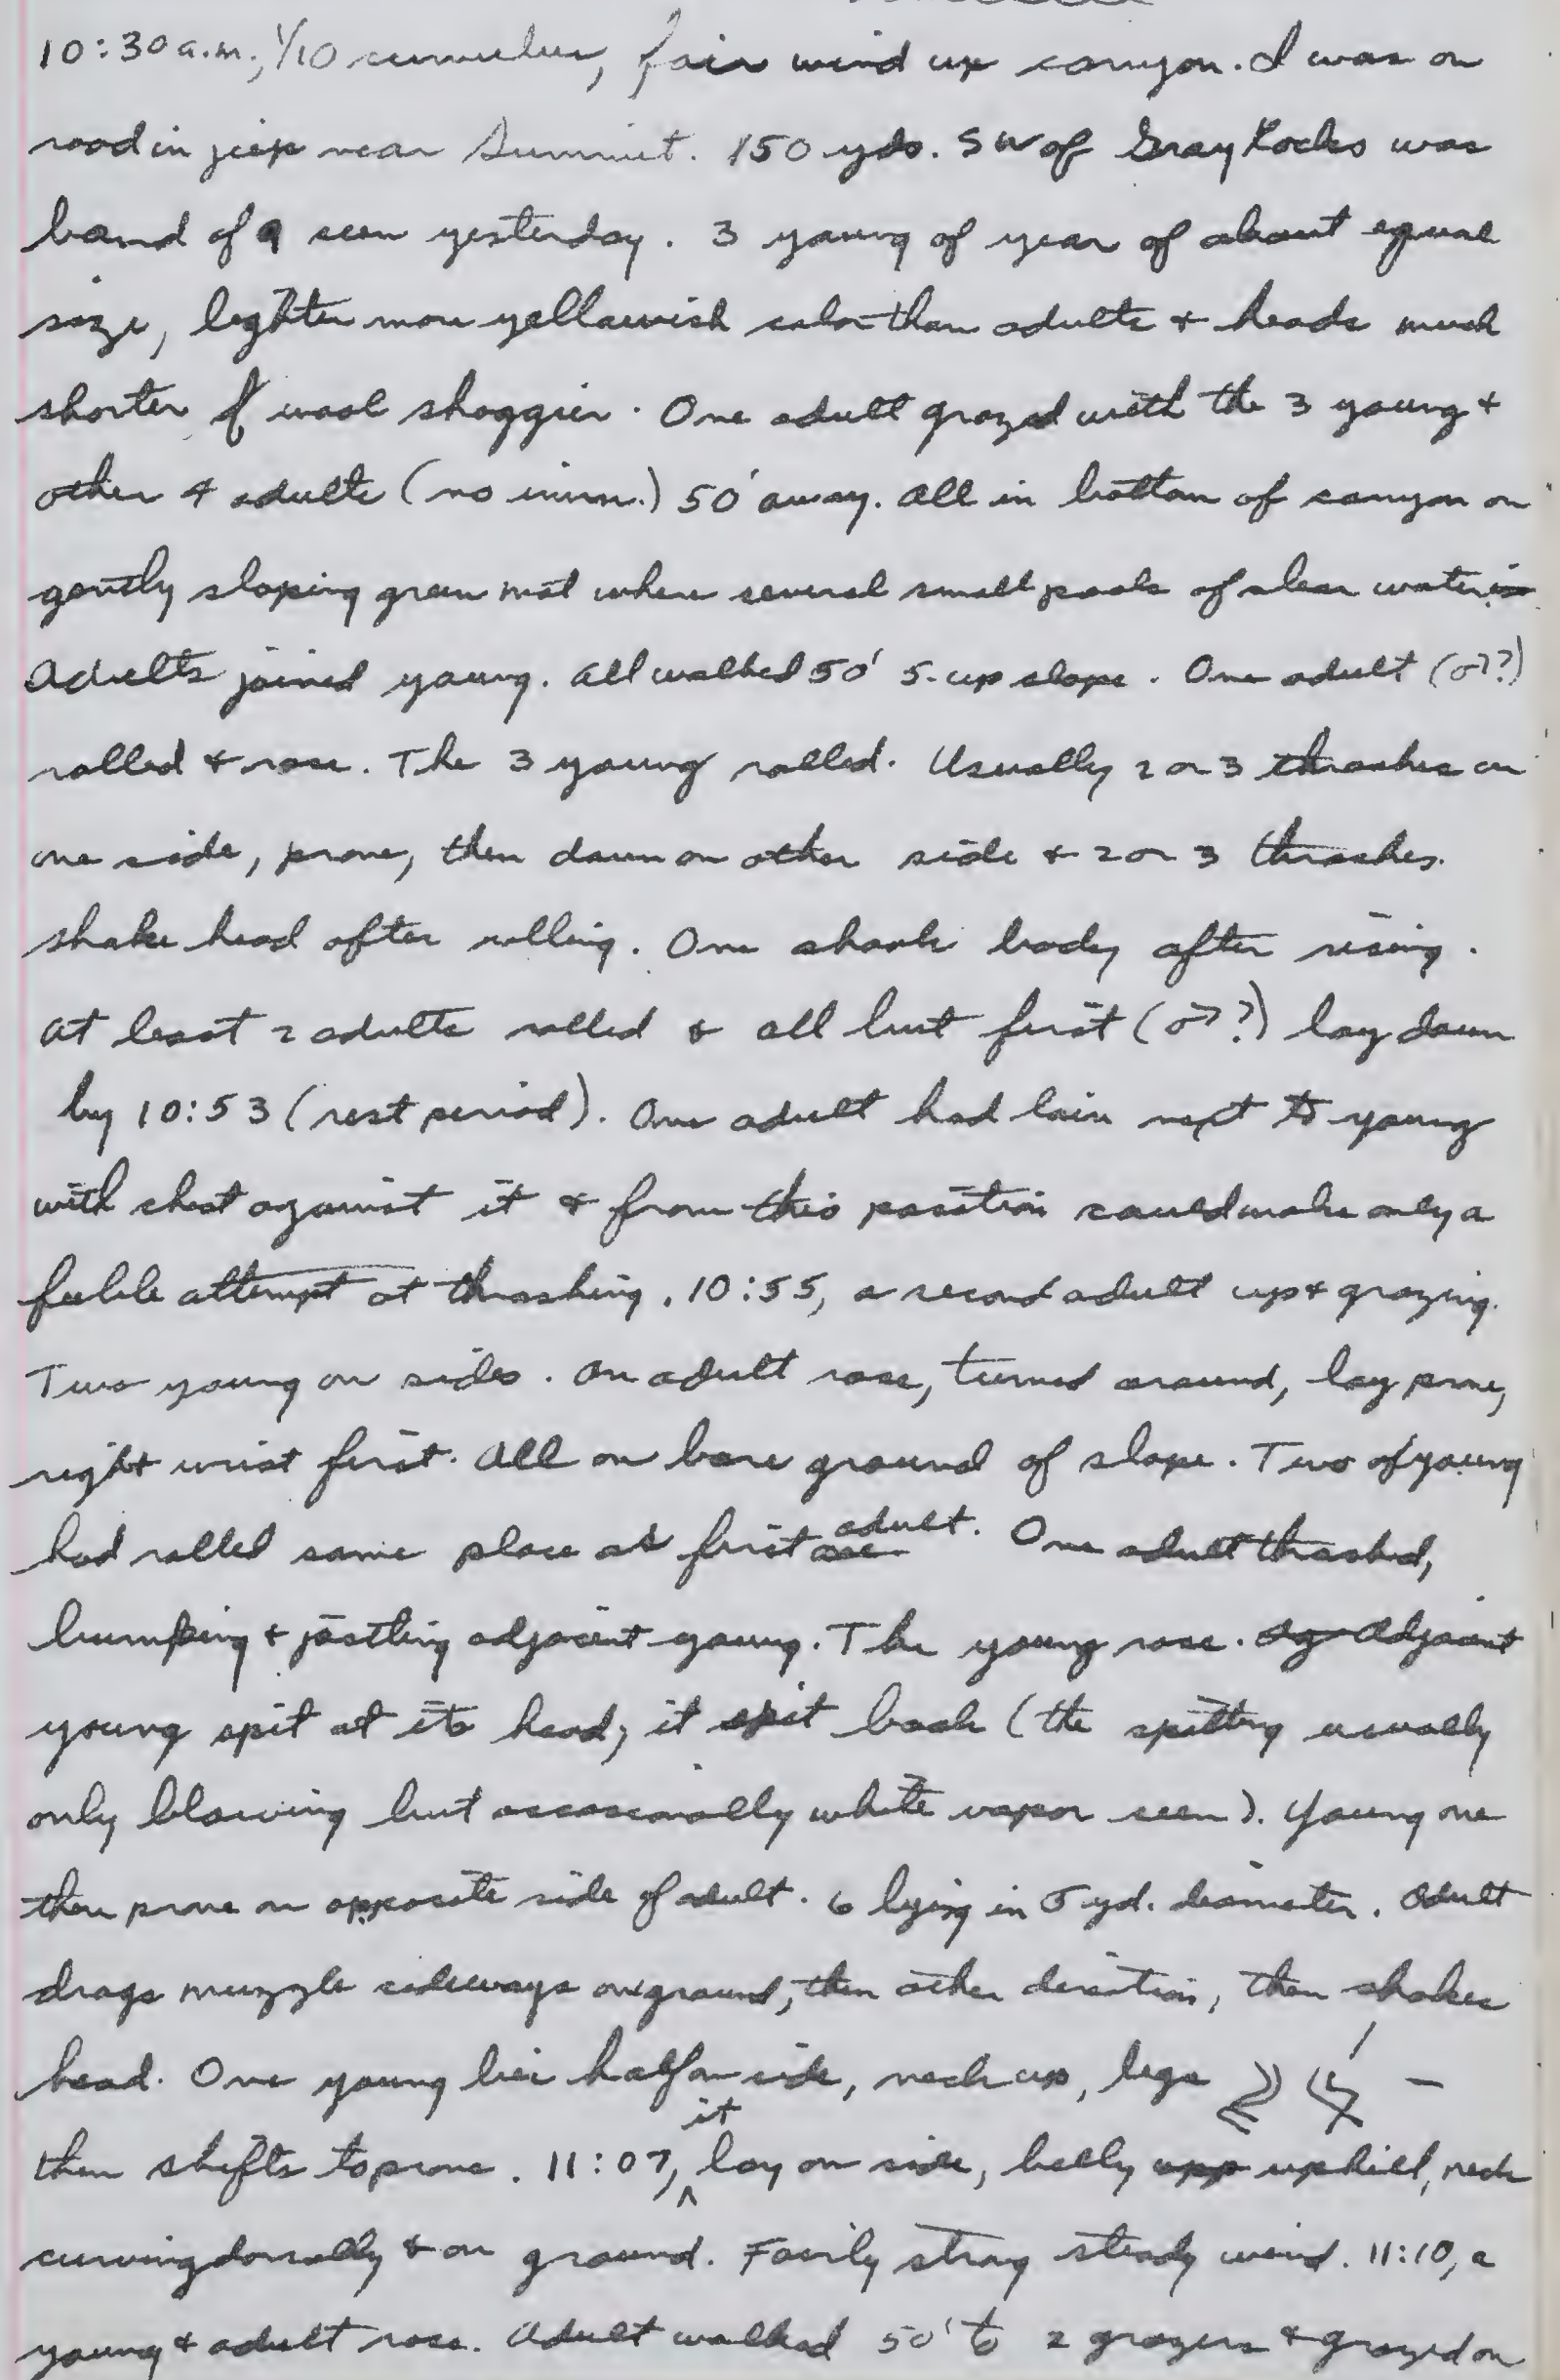 10:30 a.m., 1/10 cumulus, fair wind up canyon. I was on
road in jeep near Summit. 150 yds. SW of Gray Rocks was
band of 9 seen yesterday. 3 young of year of about equal
size, lighter more yellowish color than adults & heads much
shorter & wool shaggier. One adult grazed with the 3 young &
other 4 adults (no imm.) 50' away. All in bottom of canyon on
gently sloping green mat where several small pools of clear water
Adults joined young. All walked 50' S. up slope. One adult (♂?)
rolled & rose. The 3 young rolled. Usually 2 or 3 thrashes on
one side, prone, then down on other side & 2 or 3 thrashes.
shake head after rolling. One shook body after rising.
At least 2 adults rolled & all but first (♂?) lay down
by 10:53 (rest period). One adult had lain next to young
with chest against it & from this position could make only a
feeble attempt at thrashing. 10:55, a second adult up & grazing.
Two young on sides. An adult rose, turned around, lay prone,
right wrist first. All on bare ground of slope. Two of young
had rolled same place as first adult. One adult thrashed,
bumping & jostling adjacent young. The young rose. Adjacent
young spit at its head; it spit back (the spitting usually
only blowing but occasionally white vapor seen). Young one
then prone on opposite side of adult. 6 lying in 5 yd. diameter. Adult
drags muzzle sideways on ground, then other direction, then shakes
head. One young lies half on side, neck up, legs –
then shifts to prone. 11:07, it lay on side, belly uphill, neck
curving dorsally & on ground. Fairly strong steady wind. 11:10, a
young & adult rose. Adult walked 50' to 2 grazers & grazed on